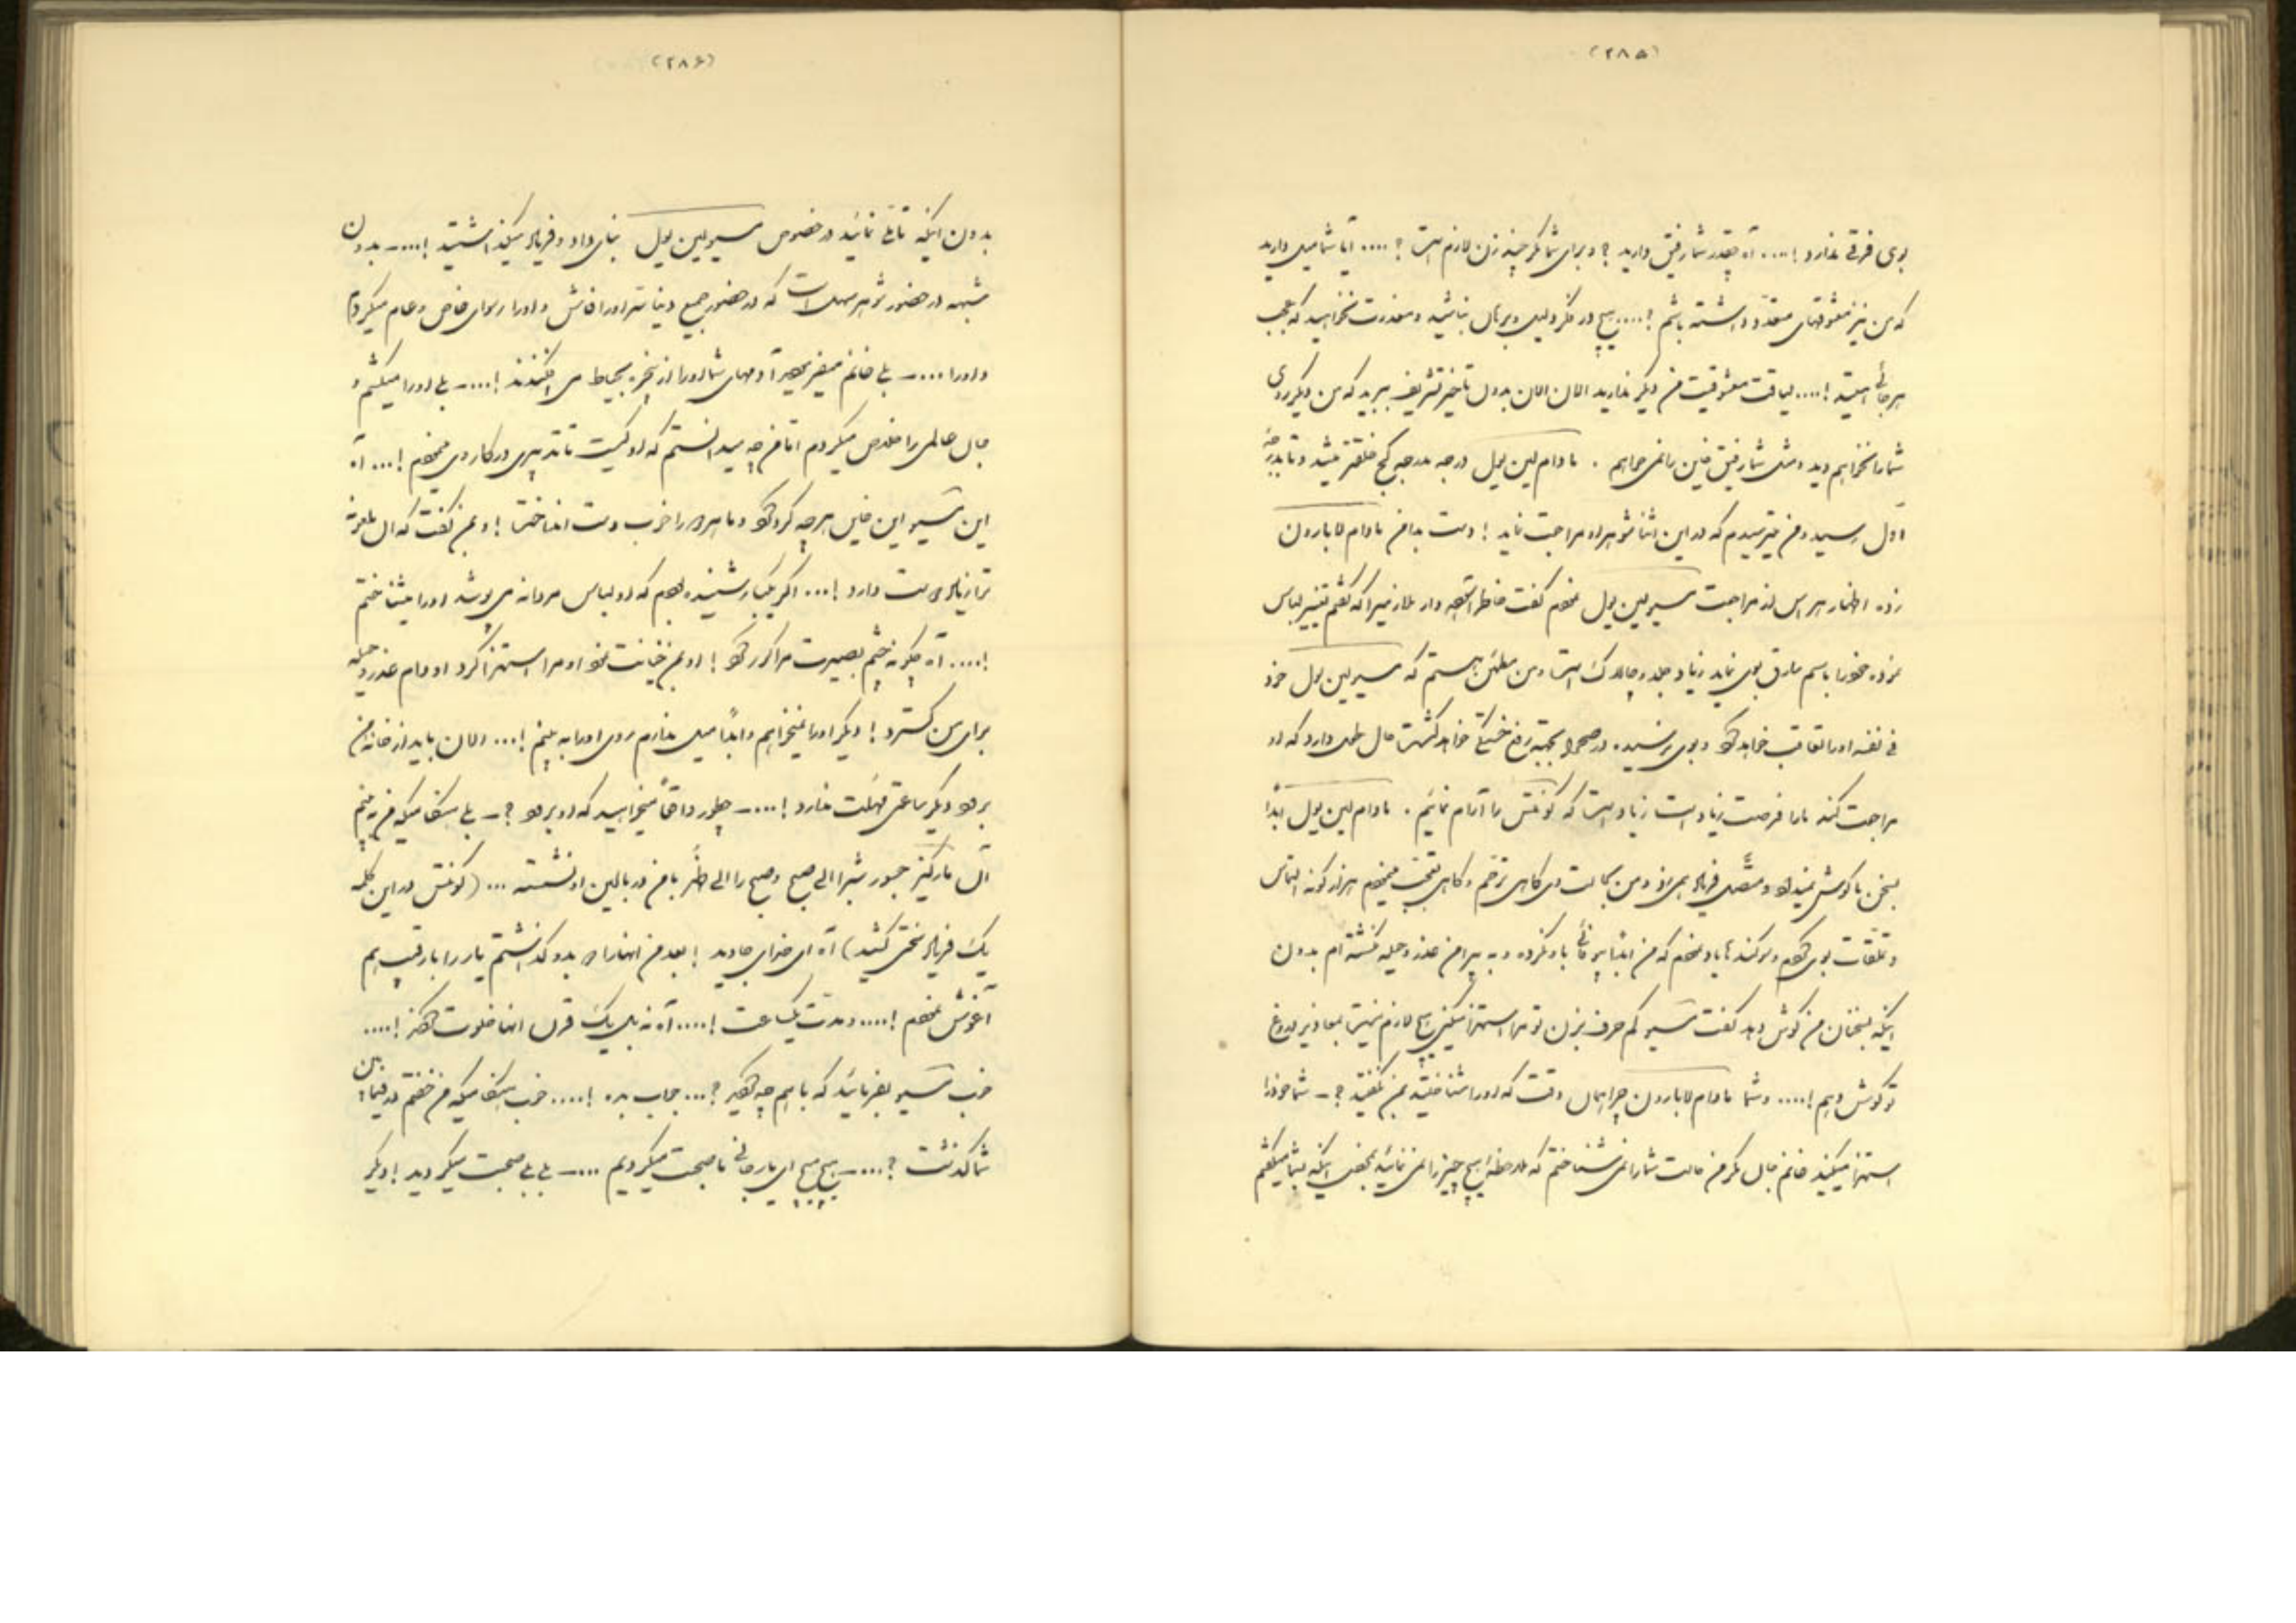 (۲۸۵)
بوی فرقی ندارد !.... آه چقدر شما رفیق دارید ؟ و برای شما مگر چند زن لازم است ؟ .... آیا شما میل دارید
که من نیز معشوقهای متعدد داشته باشم ؟.... هیچ در فکر دلیل و برهان نباشید و معذرت نخواهید که عجب
هرجائی هستید !.... لیاقت معشوقیت من دیگر ندارید الان الان بدون تاخیر تشریف ببرید که من دیگر روی
شما را نخواهم دید و مثل شما رفیق خاین را نمی خواهم . مادام لین یول درجه بدرجه کج خلقتر میشد و تا بدرجهٔ
اول رسید و من میترسیدم که در این اثنا شوهر او مراجعت نماید ! دست بدامن مادام لابارون
زده اظهار هراس از مراجعت مسیو لین یول نمودم گفت خاطر آسوده دار ملازمیرا که گفتم تغییر لباس
نموده خود را باسم مارق بوی نماید زیاد جلد و چالاک است و من مطمئن هستم که مسیو لین یول خود
فی نفسه او را تعاقب خواهد کرد و بوی نرسیده در صحرا بجهة رفع خستگی خواهد گشت حال طول دارد که او
مراجعت کند ما را فرصت زیاد است زیاد است که کونتس را آرام نمائیم . مادام لین یول ابداً
بسخن ما گوش نمیداد و متصل فریاد همی زد و من بحالت وی گاهی ترحم و گاهی تعجب مینمودم هزار گونه التماس
و تملقات بوی کردم و سوگندها یاد نمودم که من ابداً بیوفائی باو نکرده و به پیرامن عذر و حیله نگشته ام بدون
اینکه بسخنان من گوش دهد گفت مسیو کم حرف بزن تو مرا استهزا میکنی هیچ لازم نیست بمعاذیر دروغ
تو گوش دهم !.... و شما مادام لابارون چرا همان وقت که او را شناختید بمن نگفتید ؟ – شما خود را
استهزا میکنید خانم جان مگر من حالت شما را نمی شناختم که ملاحظهٔ هیچ چیز را نمی نمائید بمحض اینکه بشما میگفتم
(۲۸۶)
بدون اینکه تأملی نمائید در خصوص مسیو لین یول بنای داد و فریاد میگذاشتید !....– بدون
شبهه در حضور شوهر سهل است که در حضور جمیع دنیا ستر او را فاش و او را رسوای خاص و عام میکردم
و او را ....– بلی خانم میفرمودید آدمهای شما او را از پنجره بحیاط می افکندند !....– بلی او را میکشتم و
جان عالمی را خلاص میکردم اما من چه میدانستم که او کیست تا تدبیری در کار وی مینمودم !... آه
این مسیو این خاین هرچه کرد کرد و ما هردو را خوب دست انداخت ! و بمن گفت که ال ملعونه
ترا زیاد دوست دارد !... اگر یکبار شنیده بودم که او لباس مردانه می پوشد او را میشناختم
!.... آه چگونه چشم بصیرت مرا کور کرد ! او بمن خیانت نمود او مرا استهزا کرد او دام عذر و حیله
برای من گسترد ! دیگر او را نمیخواهم و ابداً میل ندارم روی او را به بینم !... الان باید از خانهٔ من
برود دیگر ساعتی مهلت ندارد !....– چطور واقعاً میخواهید که او برود ؟ – بلی هنگامیکه من به بینم
آن مارکیز جسور شبرا الی صبح و صبح را الی ظهر با من در بالین او نشسته ... (کونتس در این کلمه
یک فریاد سختی کشید) آه ای خدای جاوید ! بعد من اینها را بدو گذاشتم یار را با رقیب هم
آغوش نمودم !.... و مدت یکساعت !.... آه نه بل یک قرن اینها خلوت کردند !....
خوب مسیو بفرمائید که با هم چه کردید ؟... جواب بده !.... خوب هنگامیکه من خفتم در فیمابین
شما گذشت ؟....– هیچ هیچ ای یار جانی ما صحبت میکردیم ....– بلی بلی صحبت میکردید ! دیگر